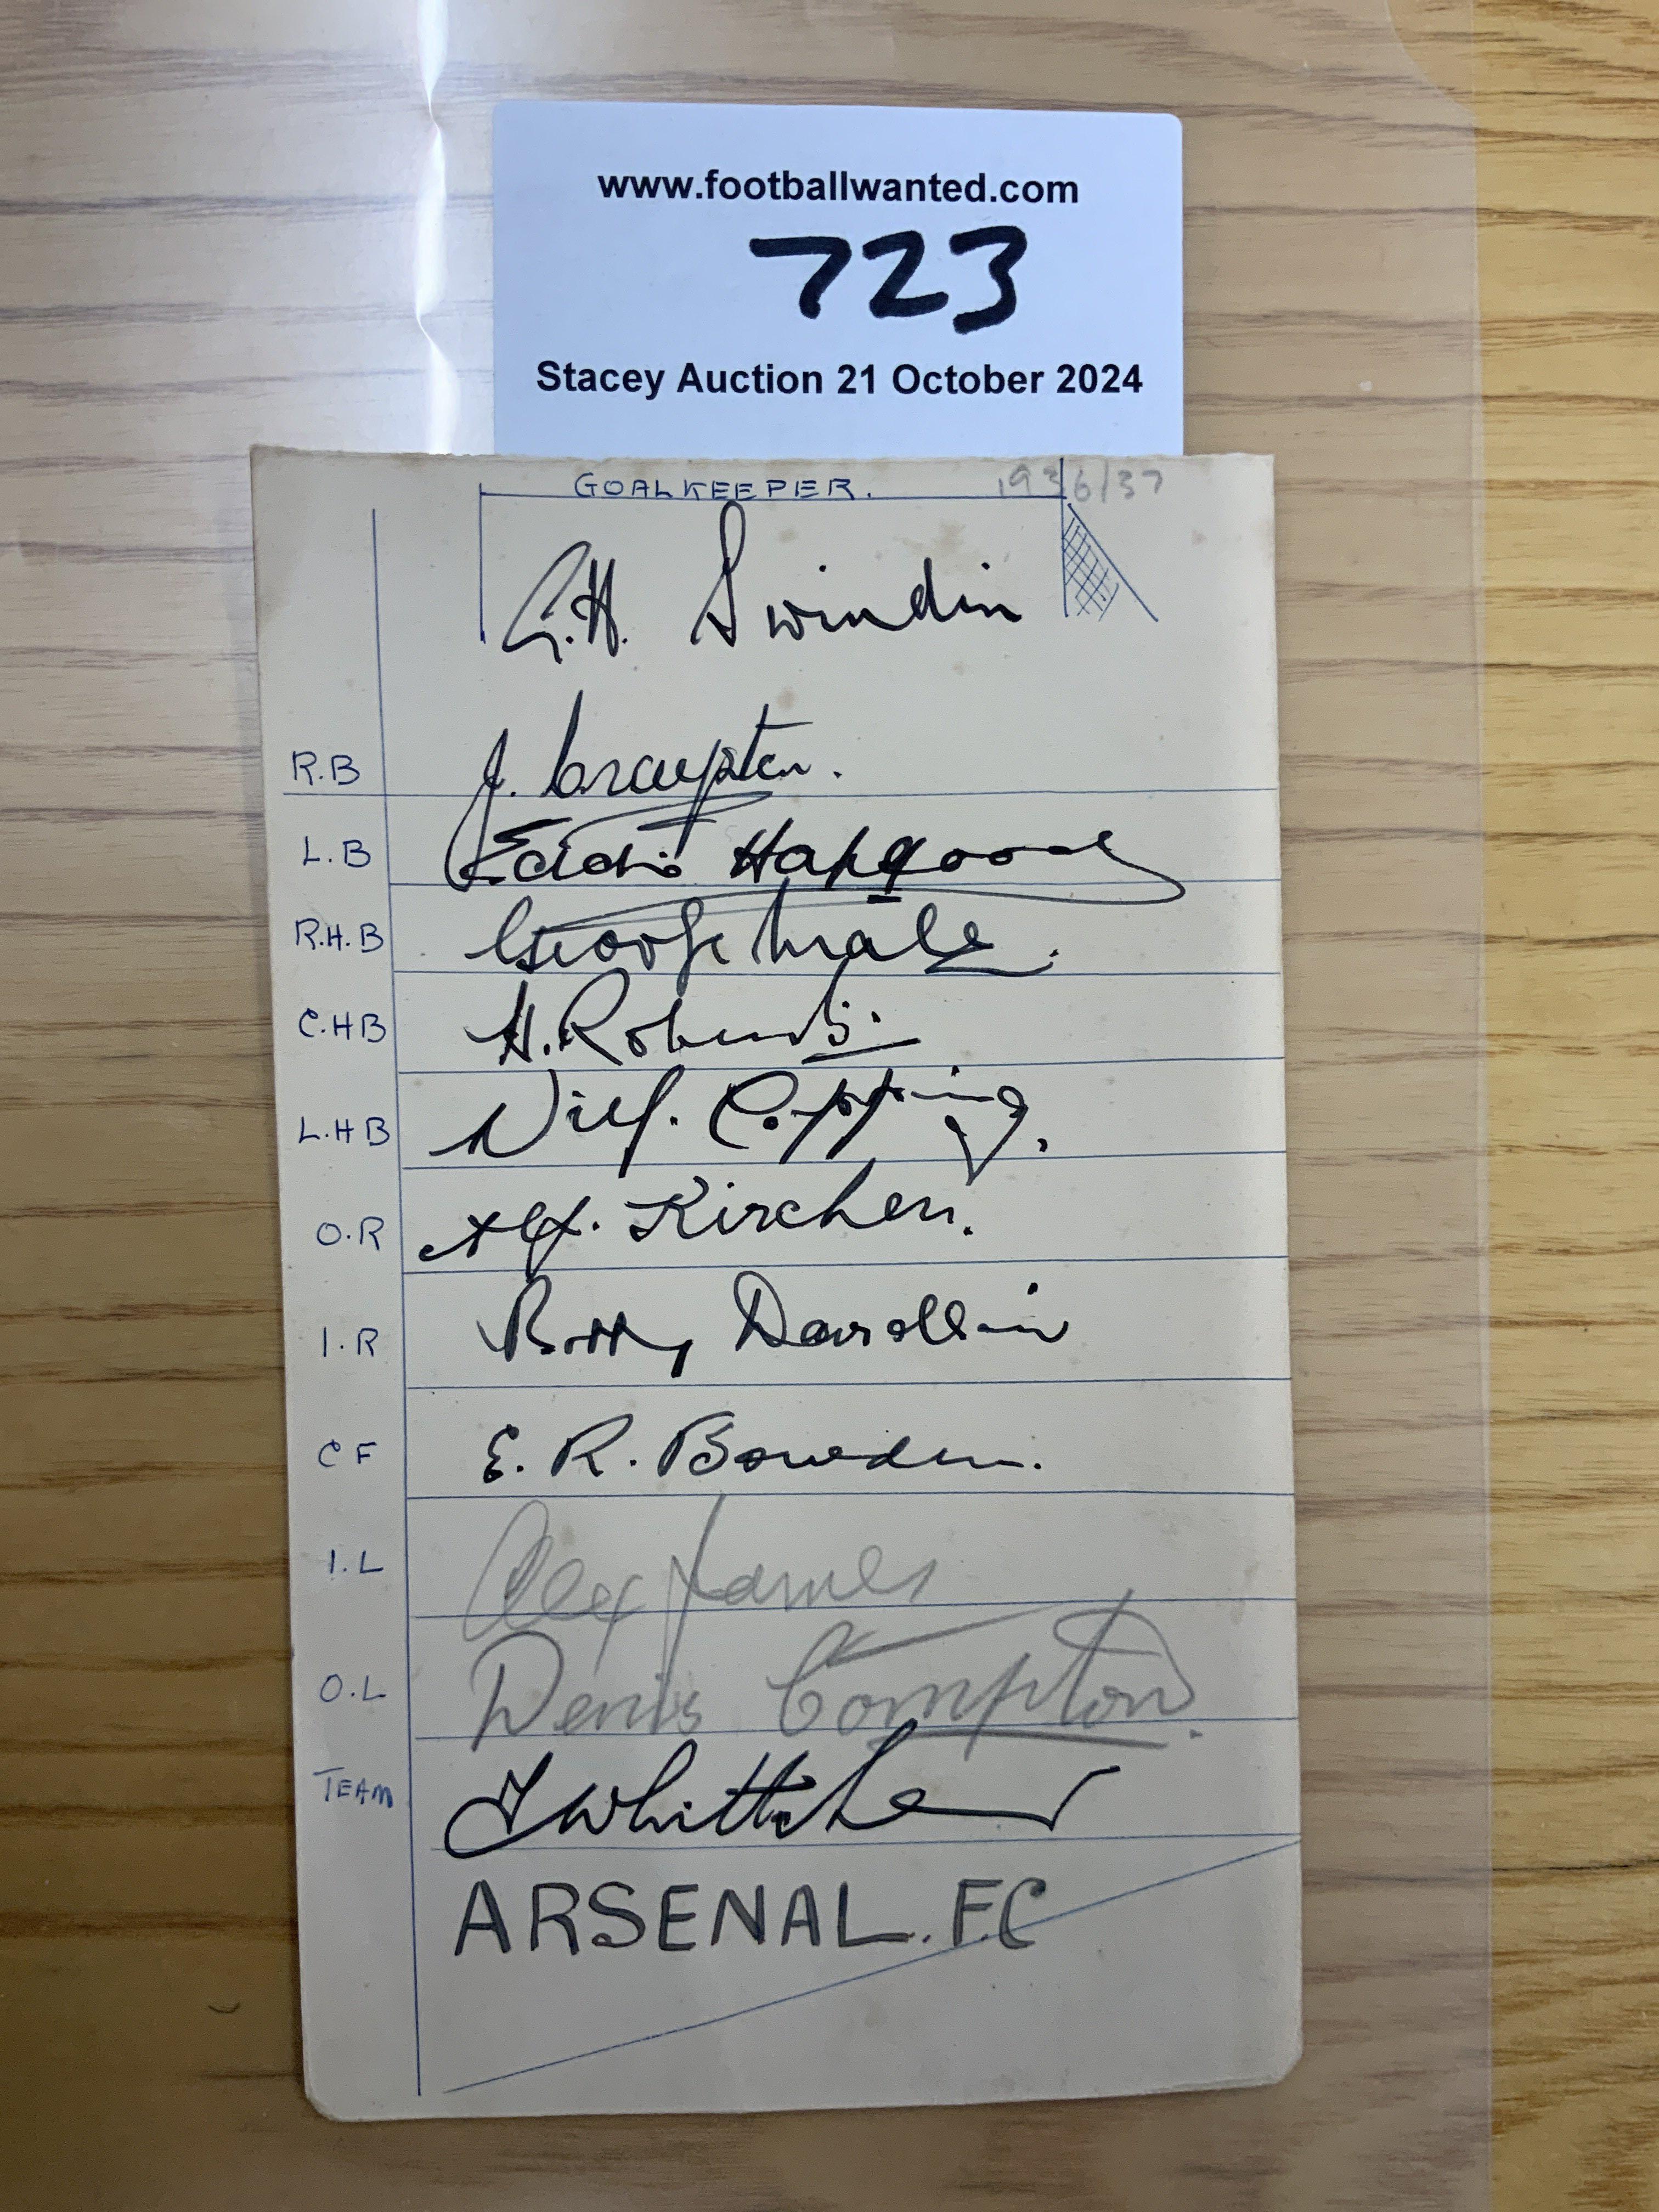 www.footballwanted.com
723
Stacey Auction 21 October 2024
GOALKEEPER. 1936/37
G.H. Swindin
R.B J. Crayston.
L.B Eddie Hapgood
R.H.B George Male.
C.HB H. Roberts.
L.HB Wilf. Copping.
O.R Alf. Kirchen.
I.R Bobby Davidson
C F E. R. Bowden.
I.L Alex James
O.L Denis Compton.
TEAM T Whittaker
ARSENAL. F.C